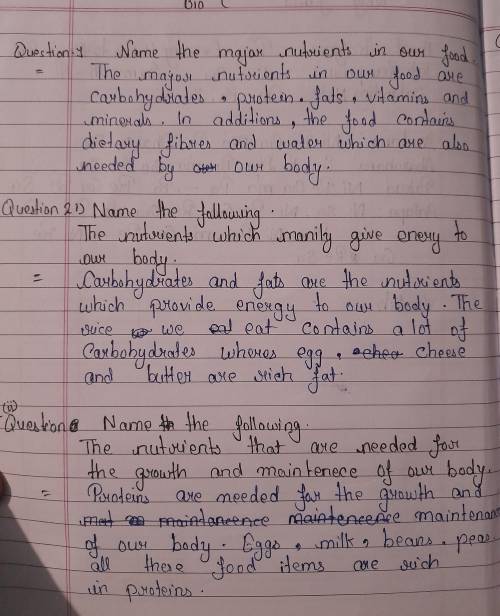 Bio
Question-1 Name the major nutrients in our food.
= The major nutrients in our food are
carbohydrates, protein, fats, vitamins and
minerals. In additions, the food contains
dietary fibres and water which are also
needed by our body.
Question 2 i) Name the following.
The nutrients which manily give enery to
our body.
= Carbohydrates and fats are the nutrients
which provide energy to our body. The
rice we eat contains a lot of
carbohydrates wheres egg, cheese
and butter are rich fat.
(ii)
Question Name the following.
The nutrients that are needed for
the growth and maintenece of our body.
= Proteins are needed for the growth and
maintenan
of our body. Eggs, milk, beans, peas
all these food items are rich
in proteins.